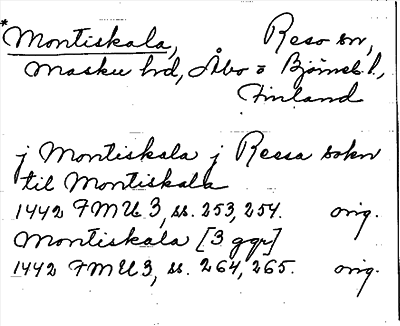 *Montiskala, Reso sn,
Masku hd, Åbo o Björneb. l.,
Finland
j Montiskala j Resa sokn
til Montiskala
1442 FMU 3, ss. 253, 254. orig.
Montiskala [3 ggr]
1442 FMU 3, ss. 264, 265. orig.